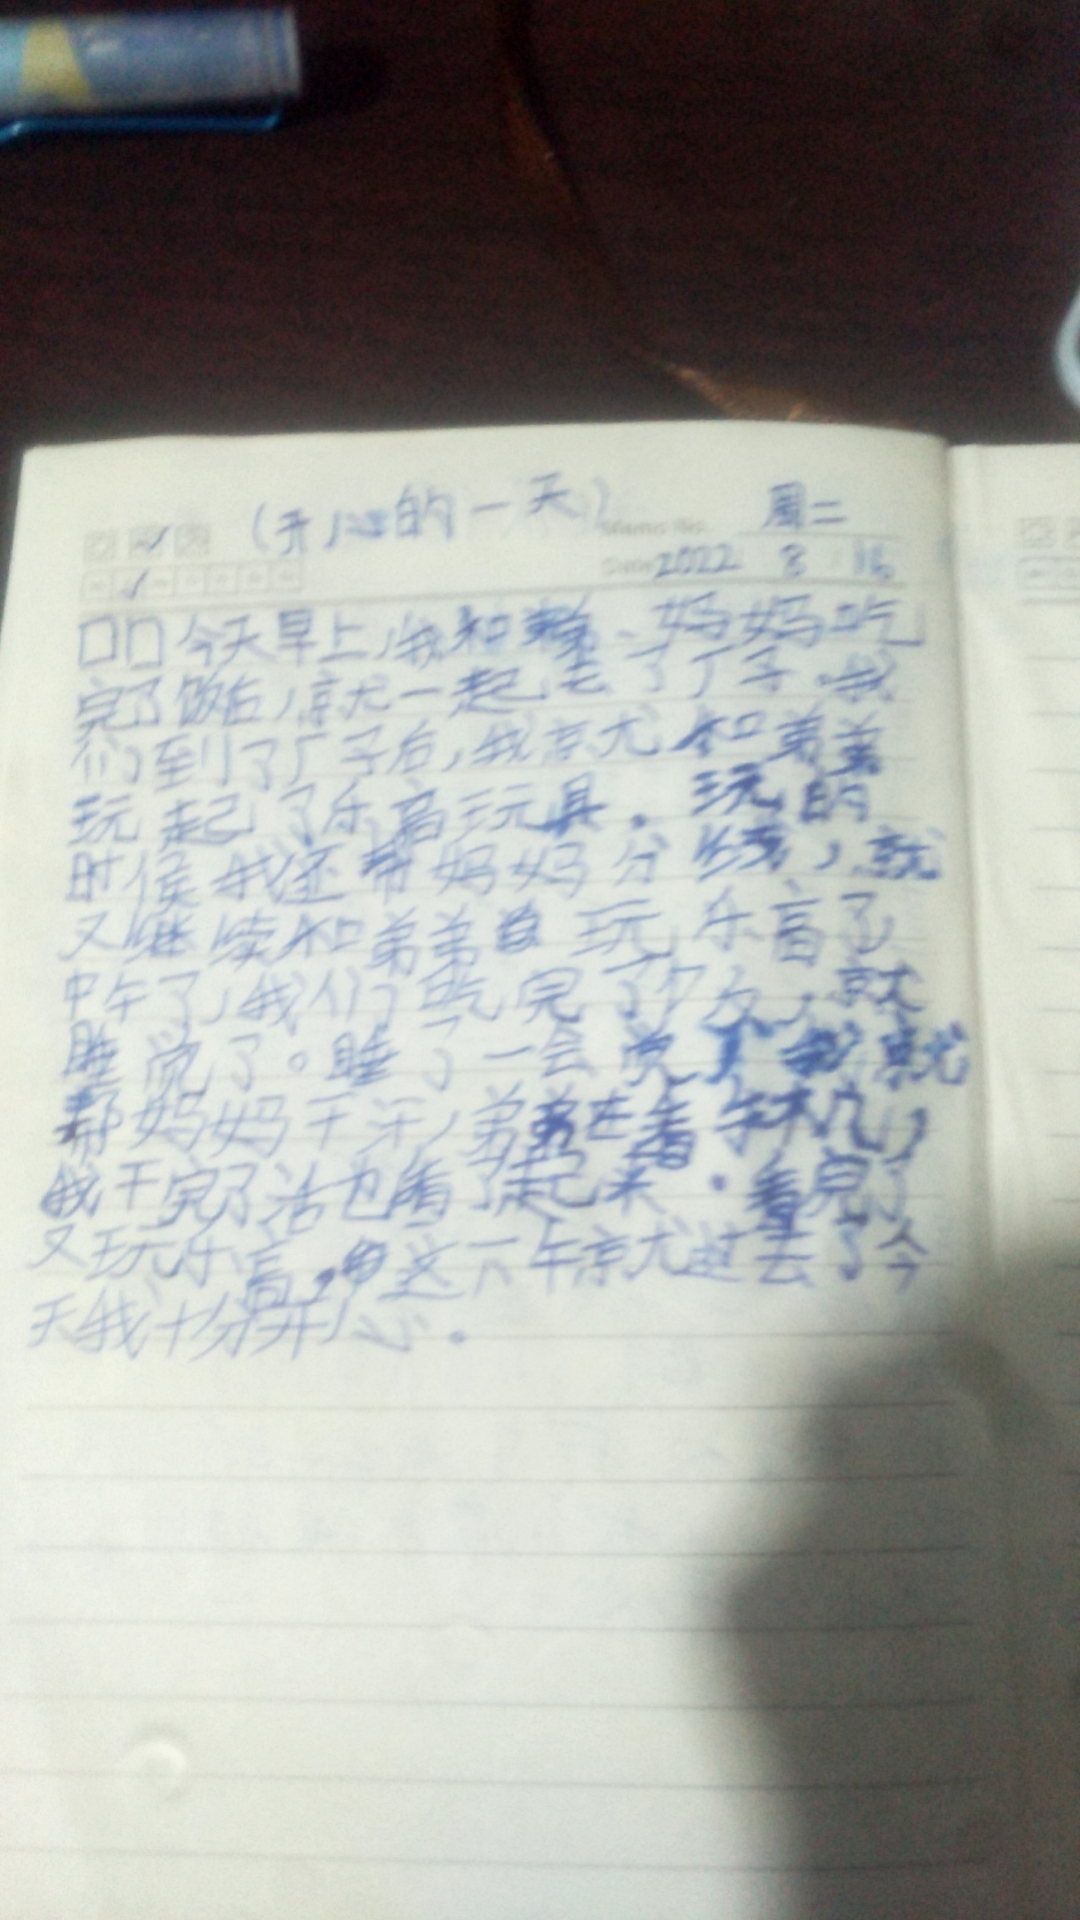 (开心的一天) 周二
Memo No.
Date 2022 8 16
口口今天早上,我和 妈妈吃
完了饭后,就一起去了厂子.我
们到了厂子后,我就和弟弟
玩起了乐高玩具.玩的
时候我还帮妈妈分线,就
又继续和弟弟 玩乐高了,
中午了,我们吃完了夕,就
睡觉了。睡了一会觉了我就
帮妈妈干汗,弟弟在看手机,
我干完了活也看了起来.看完了
又玩乐高, 这下午就过去了今
天我十分开心.